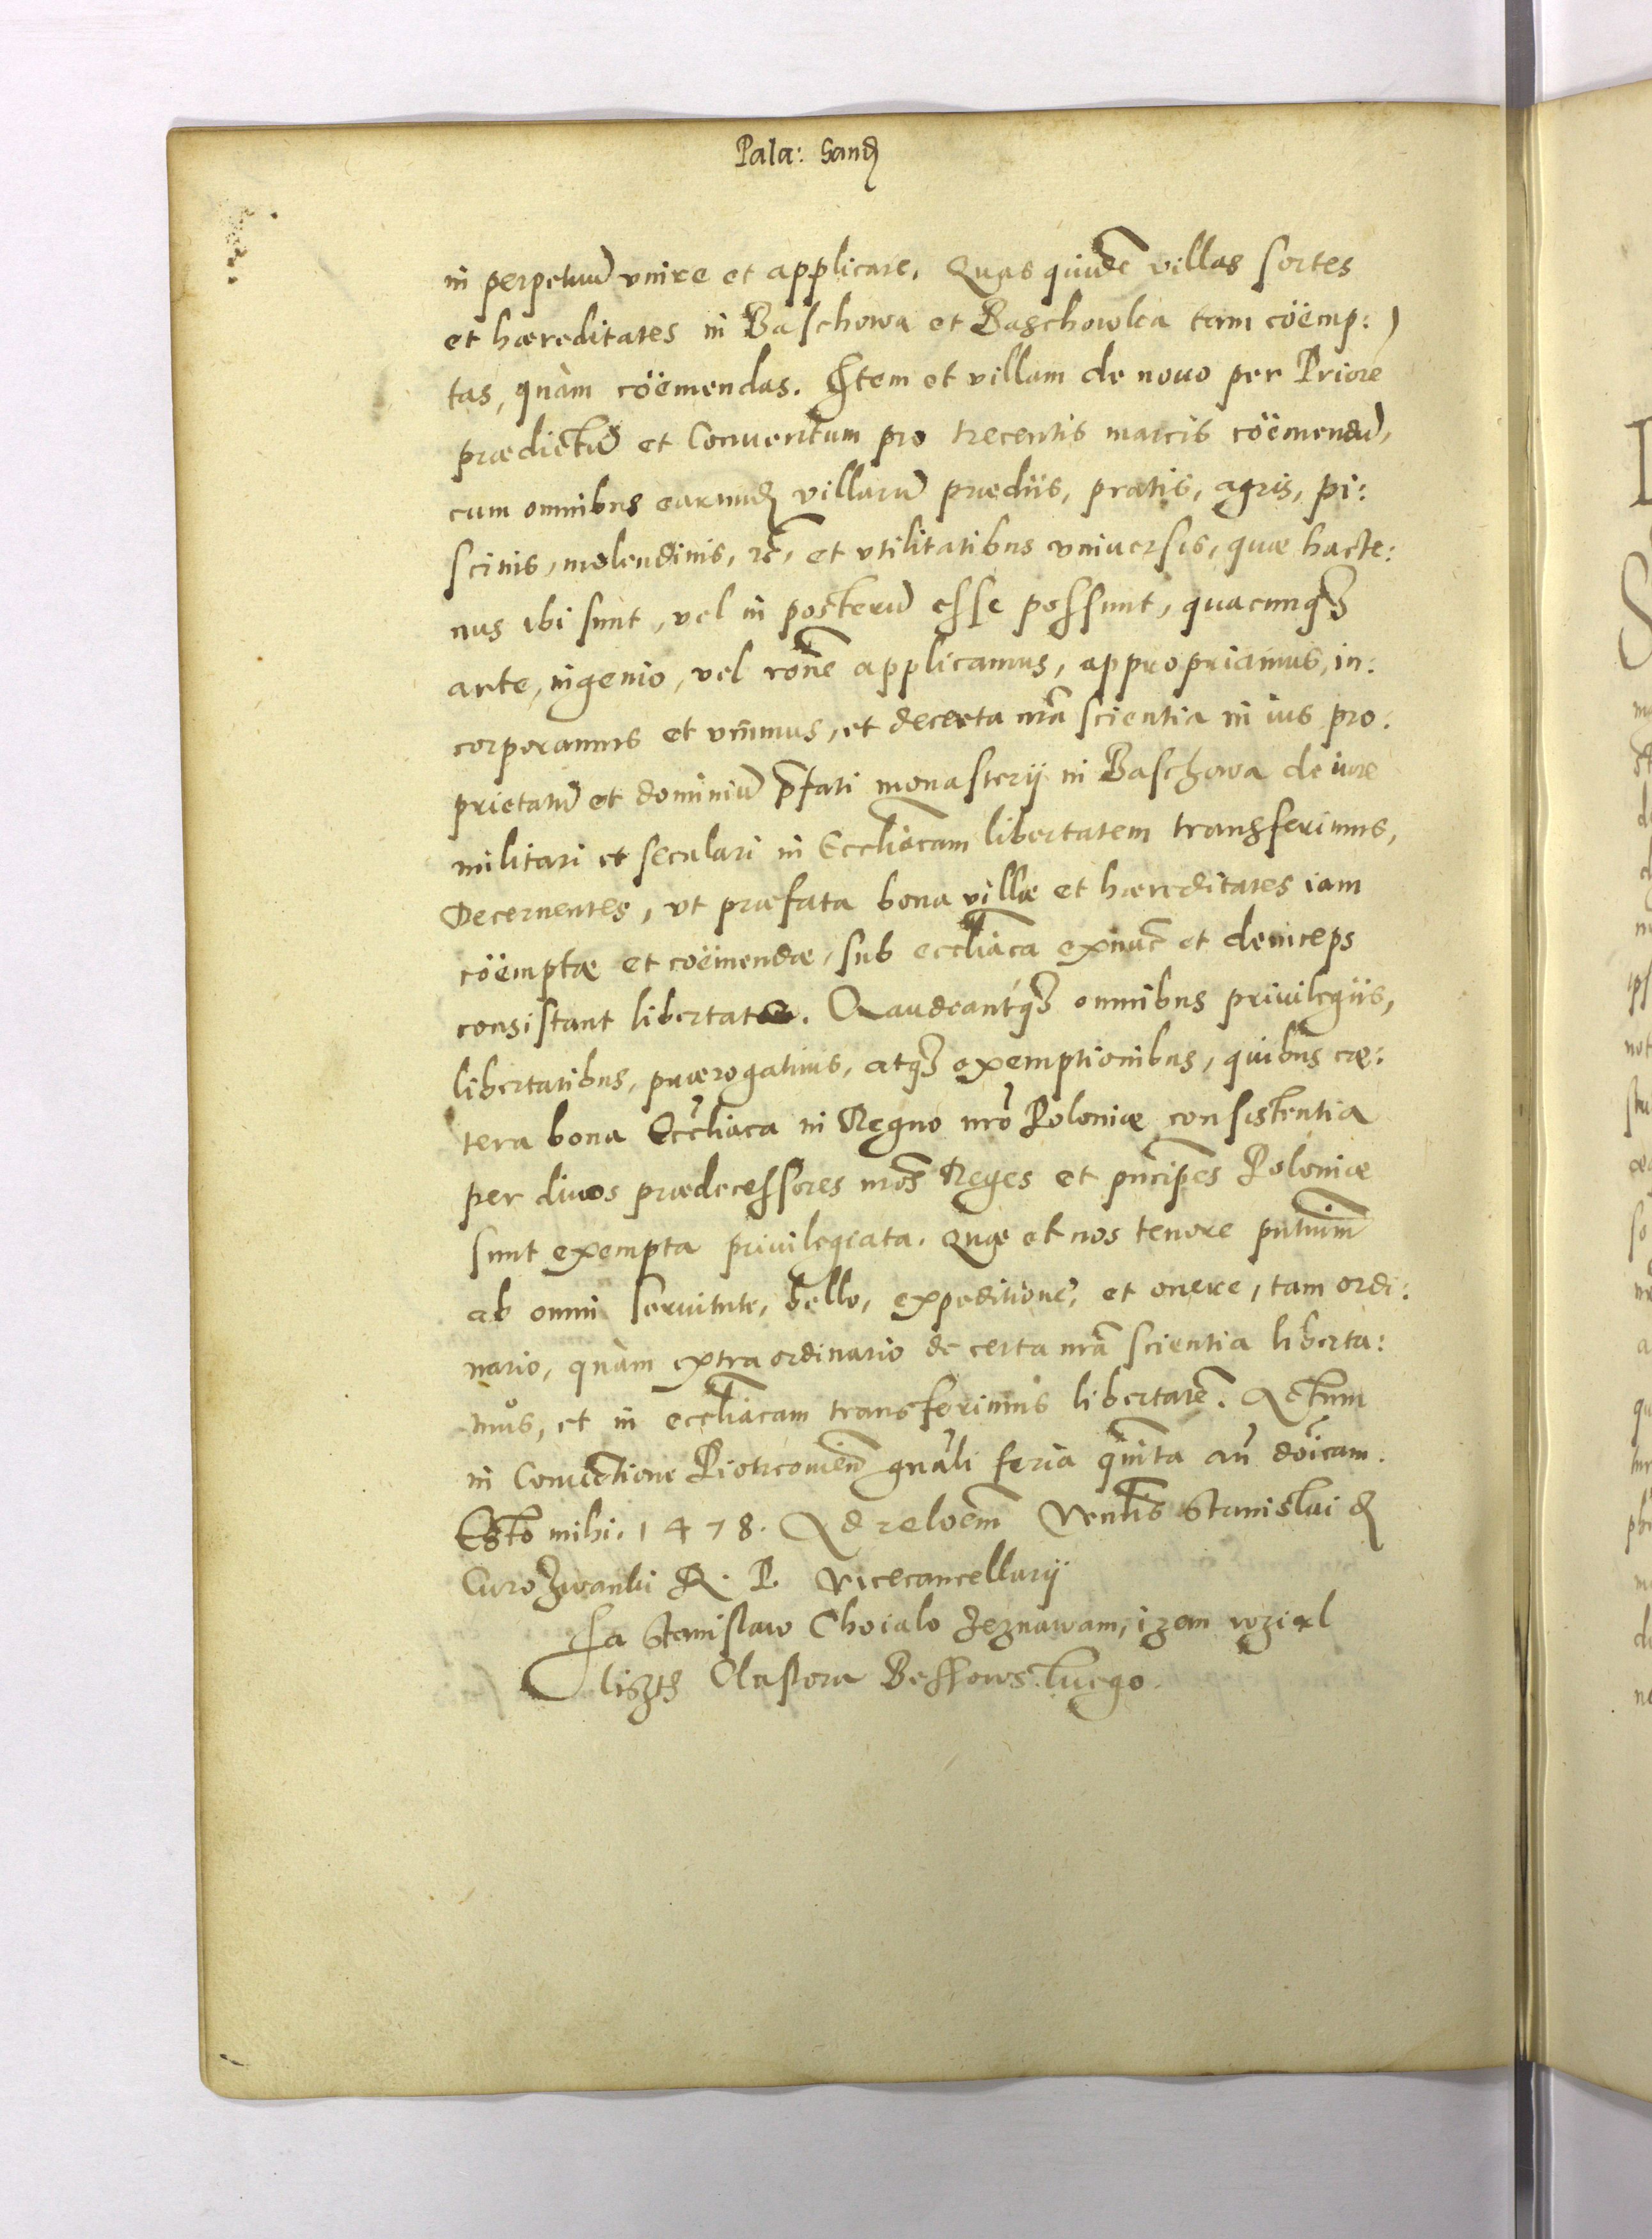 Pala: Sand
in perpetuũ vnire et applicare. Quas quidẽ villas sortes
et hæreditates in Baschowa et Baschowka tam cöemp:
tas, quàm cöemendas. Item et villam de nouo per Priorẽ
prædictũ et Conuentum pro trecentis marcis cöemendã,
cum omnibus earund villarũ prædiis, pratis, agris, pi:
scinis, molendinis, rc̃, et vtilitatibus vniuersis, quæ hacte:
nus ibi sunt, vel in posterũ esse possunt, quacunq3
arte, ingenio, vel rõne applicamus, appropriamus, in:
corporamus et vnimus, et decerta nrã scientia in ius pro:
prietatũ et dominiũ p̃fati monasterij in Baschowa de iure
militari et seculari in Eccliãcam libertatem transferimus,
Decernentes, vt præfata bona villæ et hæreditates iam
cöemptæ et cöemendæ, sub eccliãca exnũc et deinceps
consistant libertate. Gaudeantq3 omnibus priuilegiis,
libertatibus, prærogatiuis, atq3 exemptionibus, quibus cæ:
tera bona Eccliãca in Regno nrõ Poloniæ consistentia
per diuos prædecessores nrõs Reges et prĩcipes Poloniæ
sunt exempta priuilegiata. Quæ et nos tenore pñtiũm
ab omni seruitute, bello, expeditione, et onere, tam ordi:
nario, quàm extraordinario de certa nrã scientia liberta:
mus, et in eccliãcam transferimus libertatẽ. Actum
in Conuẽtione Piotrcouieñ gnãli feria quinta añ dõicam.
Esto mihi. 1478. Ad relõem Venlis Stanislai d
Curozwanki R. P. Vicecancellarij
Ja Stanislaw Choialo zeznawam, izem wzial
liszth Clastora Bessowskiego.